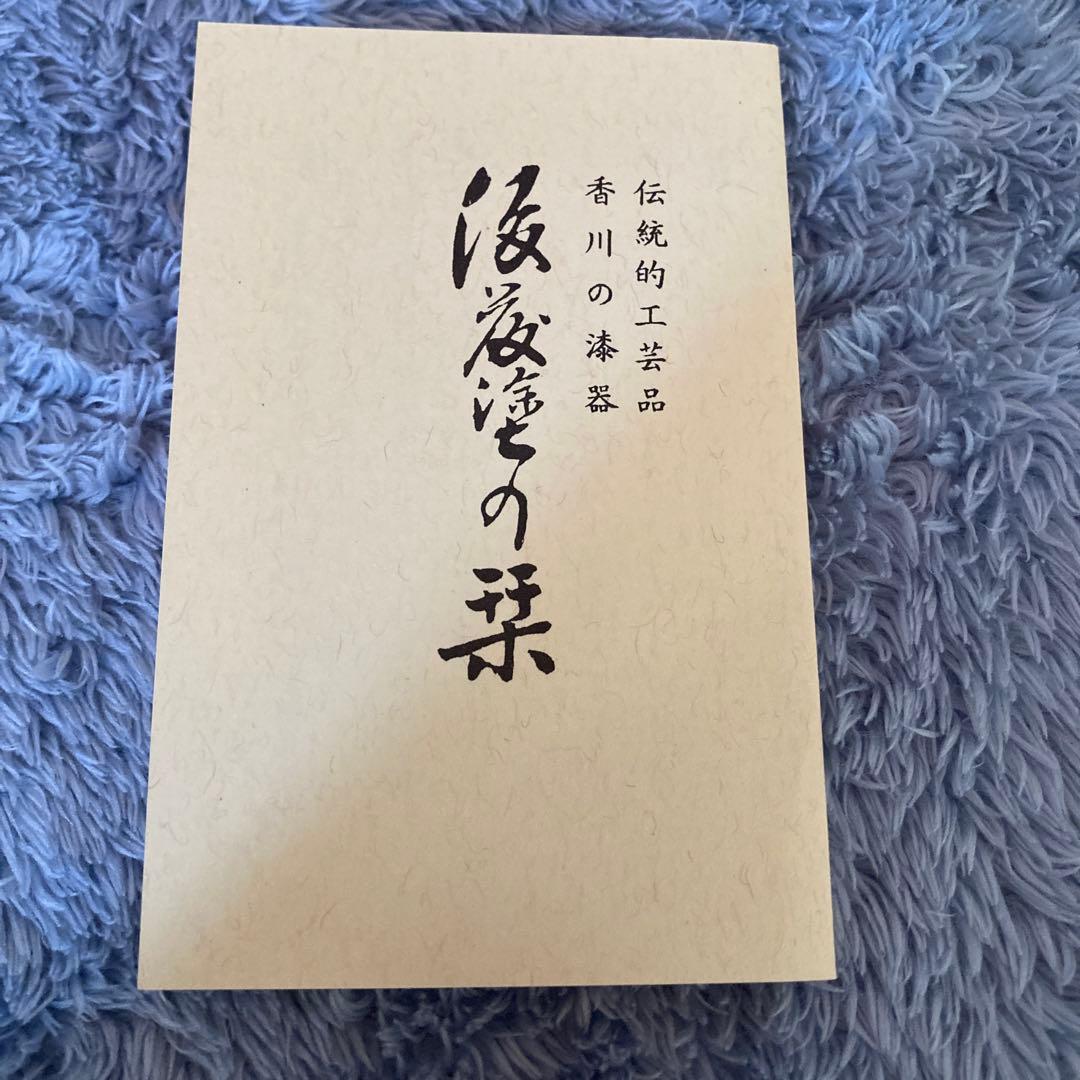 伝統的工芸品
香川の漆器
後藤塗の栞